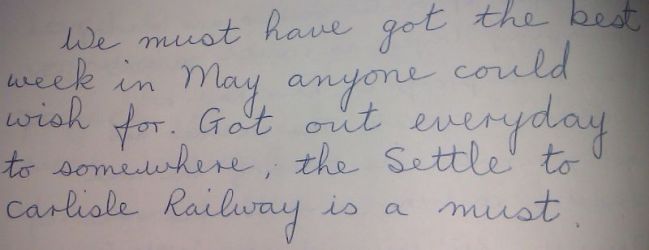 We must have got the best
week in May anyone could
wish for. Got out everyday
to somewhere, the Settle to
Carlisle Railway is a must.